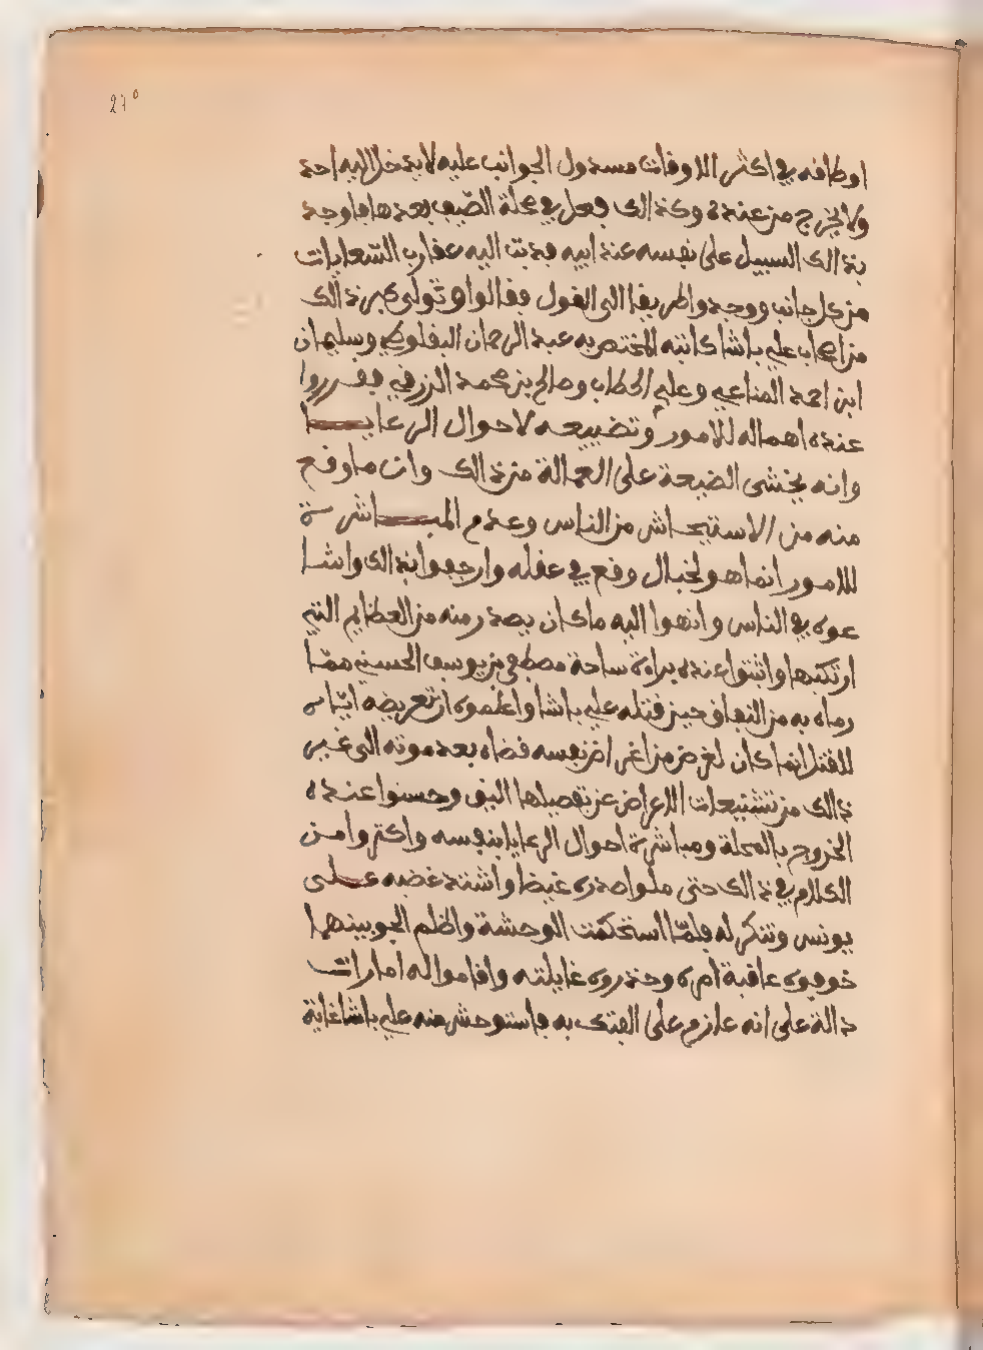 270
اوطافه في اكثر الاوقات مسدول الجوانب عليه لا يدخل اليه احد
ولا يخرج من عنده وكذالك فعل في محلة الصيف بعدها فاوجد
بذالك السبيل على نفسه عند ابيه فدبت اليه عقارب السعايات
من كل جانب ووجدوا طريقا الى القول فقالوا وتولى كبر ذالك
من اصحاب علي باشا كاتبه المختص به عبد الرحمان البقلوطي وسليمان
ابن احمد المناعي وعلي الحطاب وصالح بن محمد الزرفي فقرروا
عنده اهماله للامور وتضييعه لاحوال الرعايا
وانه يخشى الضيعة على العمالة من ذالك وان ما وقع
منه من الاستيحاش من الناس وعدم المباشرة
للامور انما هو لخبال وقع في عقله وارجفوا بذالك واشا
عوه في الناس وانهوا اليه ما كان يصدر منه من العظايم التي
ارتكبها واثبتوا عنده براءة ساحة مصطفى بن يوسف الحسيني مما
رماه به من النفاق حين قتله علي باشا واعلموه ان تعريضه اياه
للقتل انما كان لغرض من اغراض نفسه قضاه بعد موته الى غير
ذالك من تشنيعات الاعراض عن تفصيلها اليق وحسنوا عنده
الخروج بالمحلة ومباشرة احوال الرعايا بنفسه واكثروا من
الكلام في ذالك حتى ملوا صدره غيضا واشتد غضبه على
يونس وتنكر له فلما استحكمت الوحشة واظلم الجو بينهما
خوفوه عاقبة امره وحذروه غايلته واقاموا له امارات
دالة على انه عازم على الفتك به فاستوحش منه علي باشا غاية